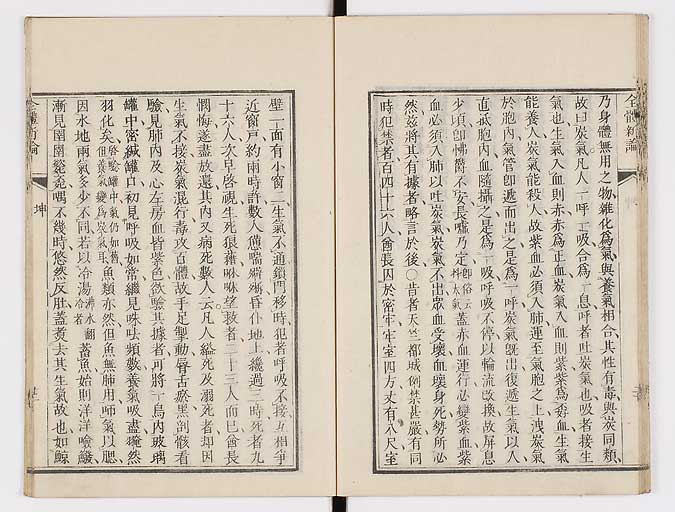 全體新論
乃身體無用之物雜化爲氣與養氣相合其性有毒與炭同類
故曰炭氣凡人一呼一吸合爲一息呼者吐炭氣也吸者接生
氣也生氣入血則赤赤爲正血炭氣入血則紫紫爲壞血生氣
能養人炭氣能殺人故紫血必須入肺運至氣胞之上洩炭氣
於胞內氣管卽遞而出之是爲一呼炭氣旣出復遞生氣以入
直抵胞內血隨攝之是爲一吸呼吸不停以輪流改換故屏息
少頃卽怫鬱不安長噓乃定卽俗云抖大氣蓋赤血運行必變紫血紫
血必須入肺以吐炭氣炭氣不出眾血受壞血壞身死勢所必
然茲將其有據者略言於後○昔者天竺都城例禁甚嚴有同
時犯禁者百四十六人酋長囚於密牢牢室四方丈有八尺室
壁一面有小窗二生氣不通鎖門移時犯者呼吸不接互相爭
近窗戶約兩時許數人憊喘漸漸昏仆地上纔過三時死者九
十六人次早啓視生死狼藉咻咻望救者二十三人而已酋長
憫悔遂盡放還其內又病死數人云凡人縊死及溺死者却因
生氣不接炭氣混行毒攻百體故手足掣動脣舌瘀黑剖骸看
驗見肺內及心左房血皆紫色欲驗其據者可將一鳥內玻璃
罐中密緘罐口初見呼吸如常繼見咮呿頻數養氣吸盡奄然
羽化矣啓喻罐中氣仍如舊但養氣變爲炭氣耳魚類亦然但魚無肺用呷氣以腮
因水地兩氣多少不同若以冷湯沸水翻冷者蓄魚始則洋洋噞鰓
漸見圉圉繼嘵喁不幾時悠然反肚蓋煑去其生氣故也如鯨
全體新論
坤